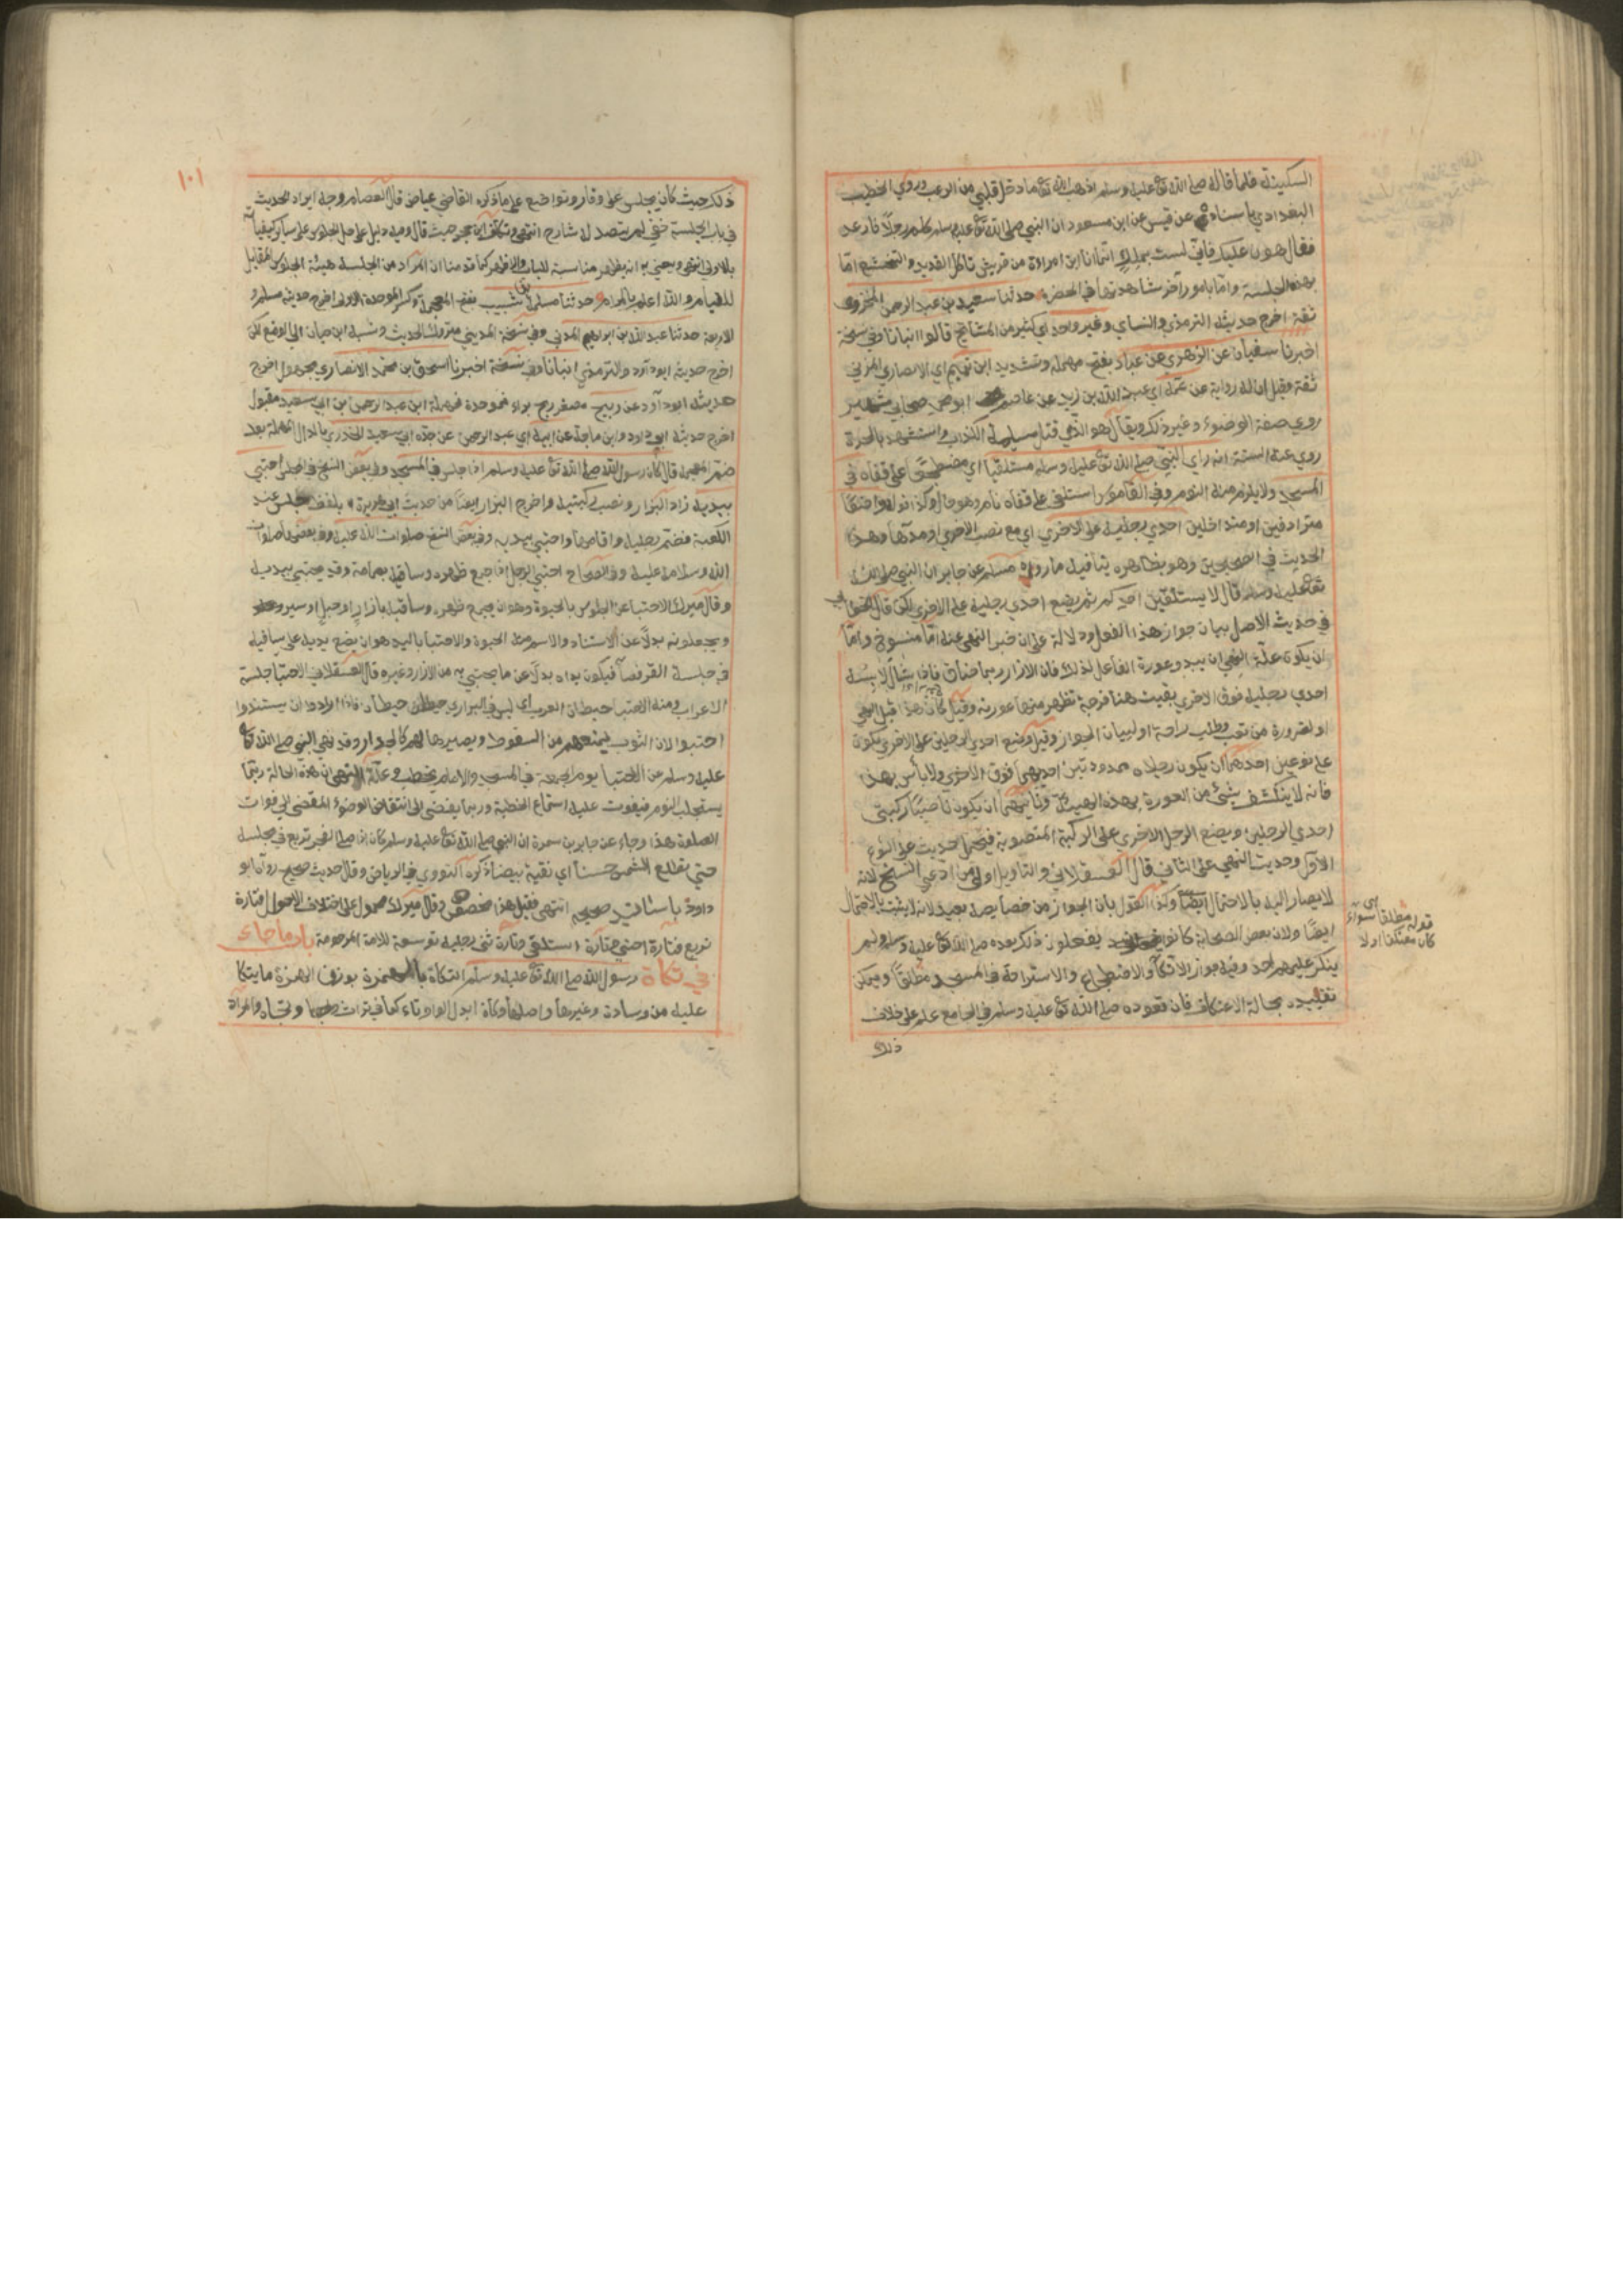 السكينة فلما قال له صلى الله تع عليه وسلم اذهب الله تع ما دخل قلبي من الرعب وروي الخطيب
البغدادي باسناده عن قيس عن ابن مسعود ان النبي صلى الله تع عليه وسلم كلم رجلا فارعد
فقال هون عليك فاني لست بملك انما انا ابن امراة من قريش تاكل القديد والتخشع اما
بهذه الجلسة واما بامور آخر شاهدتها في الحضرة حدثنا سعيد بن عبد الرحمن المخزومي
ثقة اخرج حديثه الترمذي والنساي وغير واحد اي كثير من المشائخ قالوا انبانا وفي نسخة
اخبرنا سفيان عن الزهري عن عباد بفتح مهملة وتشديد ابن تميم اي الانصاري المزني
ثقة وقيل ان له رواية عن عمه اي عبد الله بن زيد بن عاصم ابو محمد صحابي شهير
روي صفة الوضوء وغير ذلك ويقال هو الذي قتل مسيلمة الكذاب واستشهد بالحرة
روي عنه الستة انه راي النبي صلى الله تع عليه وسلم مستلقيا اي مضطجعا على قفاه في
المسجد ولا يلزم منه النوم وفي القاموس استلقى على قفاه نام وهو حال وكذا قوله واضعا
مترادفين او متداخلين احدي رجليه على الاخري اي مع نصب الاخري او مدها وهذا
الحديث في الصحيحين وهو بظاهره ينافيه ما رواه مسلم عن جابر ان النبي صلى الله
تع عليه وسلم قال لا يستلقين احدكم ثم يضع احدي رجليه على الاخري لكن قال الخطابي
في حديث الاصل بيان جواز هذا الفعل ودلالة على ان خبر النهي عنه اما منسوخ واما
ان يكون علة النهي ان يبدو عورة الفاعل لذلك فان الازار ربما ضاق فاذا شال لابسه
احدي رجليه فوق الاخري بقيت هنا فرجة تظهر منها عورته وقيل كان هذا قبل النهي
او لضرورة من تعب وطلب راحة او لبيان الجواز وقيل وضع احدي الرجلين على الاخري يكون
على نوعين احدهما ان يكون رجلاه ممدودتين احديهما فوق الاخري ولا بأس بهذا
فانه لا ينكشف شئ من العورة بهذه الهيئة وثانيهما ان يكون ناصبا ركبتي
احدي الرجلين ويضع الرجل الاخري على الركبة المنصوبة فيحمل حديث على النوع
الاول وحديث النهي على الثاني قال العسقلاني والتاويل اولى من ادعي النسخ لانه
لا يصار اليه بالاحتمال ايضا وكذا القول بان الجواز من خصايصه بعيد لانه لا يثبت بالاحتمال
ايضا ولان بعض الصحابة كانوا يفعلون ذلك بعده صلى الله تع عليه وسلم ولم
ينكر عليهم احد وفيه جواز الاتكا والاضطجاع والاستراحة في المسجد مطلقا ويمكن
تقييده بحالة الاعتكاف فان قعوده صلى الله تع عليه وسلم في الجامع علم على خلاف
ذلك
قوله مطلقا اي سواء
كان معتكفا او لا
١٠١
ذلك حيث كان يجلس على وقار وتواضع على ما ذكره القاضي عياض قال العصام وجه ايراد الحديث
في باب الجلسة خفي لم يتصد له شارح انتهى وتكلف ابن حجر حيث قال وفيه دليل على حل الجلوس على ساير كيفياته
بالاولى انتهى ويعني به انه يظهر مناسبة للباب والاظهر كما قدمنا ان المراد من الجلسة هيئة الجلوس المقابل
للقيام والله اعلم بالمرام حدثنا مسلمة بن شبيب بفتح المعجمة وكسر الموحدة الاولى اخرج حديثه مسلم و
الاربعة حدثنا عبد الله بن ابراهيم المدني وفي نسخة المديني متروك الحديث ونسبه ابن حبان الى الوضع لكن
اخرج حديثه ابو داود والترمذي انبانا وفي نسخة اخبرنا اسحق بن محمد الانصاري مجهول اخرج
حديثه ابو داود عن ربيح مصغر ربح براء فموحدة فمهملة ابن عبد الرحمن ابن ابي سعيد مقبول
اخرج حديثه ابو داود وابن ماجة عن ابيه اي عبد الرحمن عن جده ابي سعيد الخدري بالدال المهملة بعد
ضم المعجمة قال كان رسول الله صلى الله تع عليه وسلم اذا جلس في المسجد وفي بعض النسخ في المجلس احتبي
بيديه زاد البزار ونصب ركبتيه واخرج البزار ايضا من حديث ابي هريرة بلفظ جلس عند
الكعبة فضم رجليه واقامها واحتبي بيديه وفي بعض النسخ صلوات الله عليه وفي بعضها صلوات
الله وسلامه عليه وفي الصحاح احتبي الرجل اذا جمع ظهره وساقيه بعمامته وقد يحتبي بيديه
وقال ميرك الاحتباء الجلوس بالحبوة وهو ان يجمع ظهره وساقيه بازار او حبل او سير
ويجعلونه بدلا عن الاستناد والاسم منه الحبوة والاحتبا باليد هو ان يضع يديه على ساقيه
في جلسة القرفصا فيكون يداه بدلا عن ما يحتبي به من الازار وغيره قال العسقلاني الاحتبا جلسة
الاعراب ومنه الاحتبا حيطان العرب اي ليس في البراري حيطان فاذا ارادوا ان يستندوا
احتبوا لان الثوب يمنعهم من السقوط ويصير لهم كالجدار وقد نهي النبي صلى الله تع
عليه وسلم عن الاحتبا يوم الجمعة في المسجد والامام يخطب وعلة النهي ان هذه الحالة ربما
يستجلب النوم فيفوت عليه استماع الخطبة وربما يفضي الى انتقاض الوضوء المفضي الى فوات
الصلوة هذا وجاء عن جابر بن سمرة ان النبي صلى الله تع عليه وسلم كان اذا صلى الفجر تربع في مجلسه
حتي تطلع الشمس حسنا اي نقية بيضا ذكره النووي في الرياض وقال حديث صحيح رواه ابو
داود باسانيد صحيحه انتهى فقيل هذا مخصص وقال ميرك محمول على اختلاف الاحوال فتارة
تربع وتارة احتبي وتارة استلقي وتارة ثني رجليه توسعة للامة المرحومة باب ما جاء
في تكأة رسول الله صلى الله تع عليه وسلم التكاة بالهمزة بوزن الهمزة ما يتكا
عليه من وسادة وغيرها واصلها وكأة ابدل الواو تاء كما في تراث وتجاه والمراد